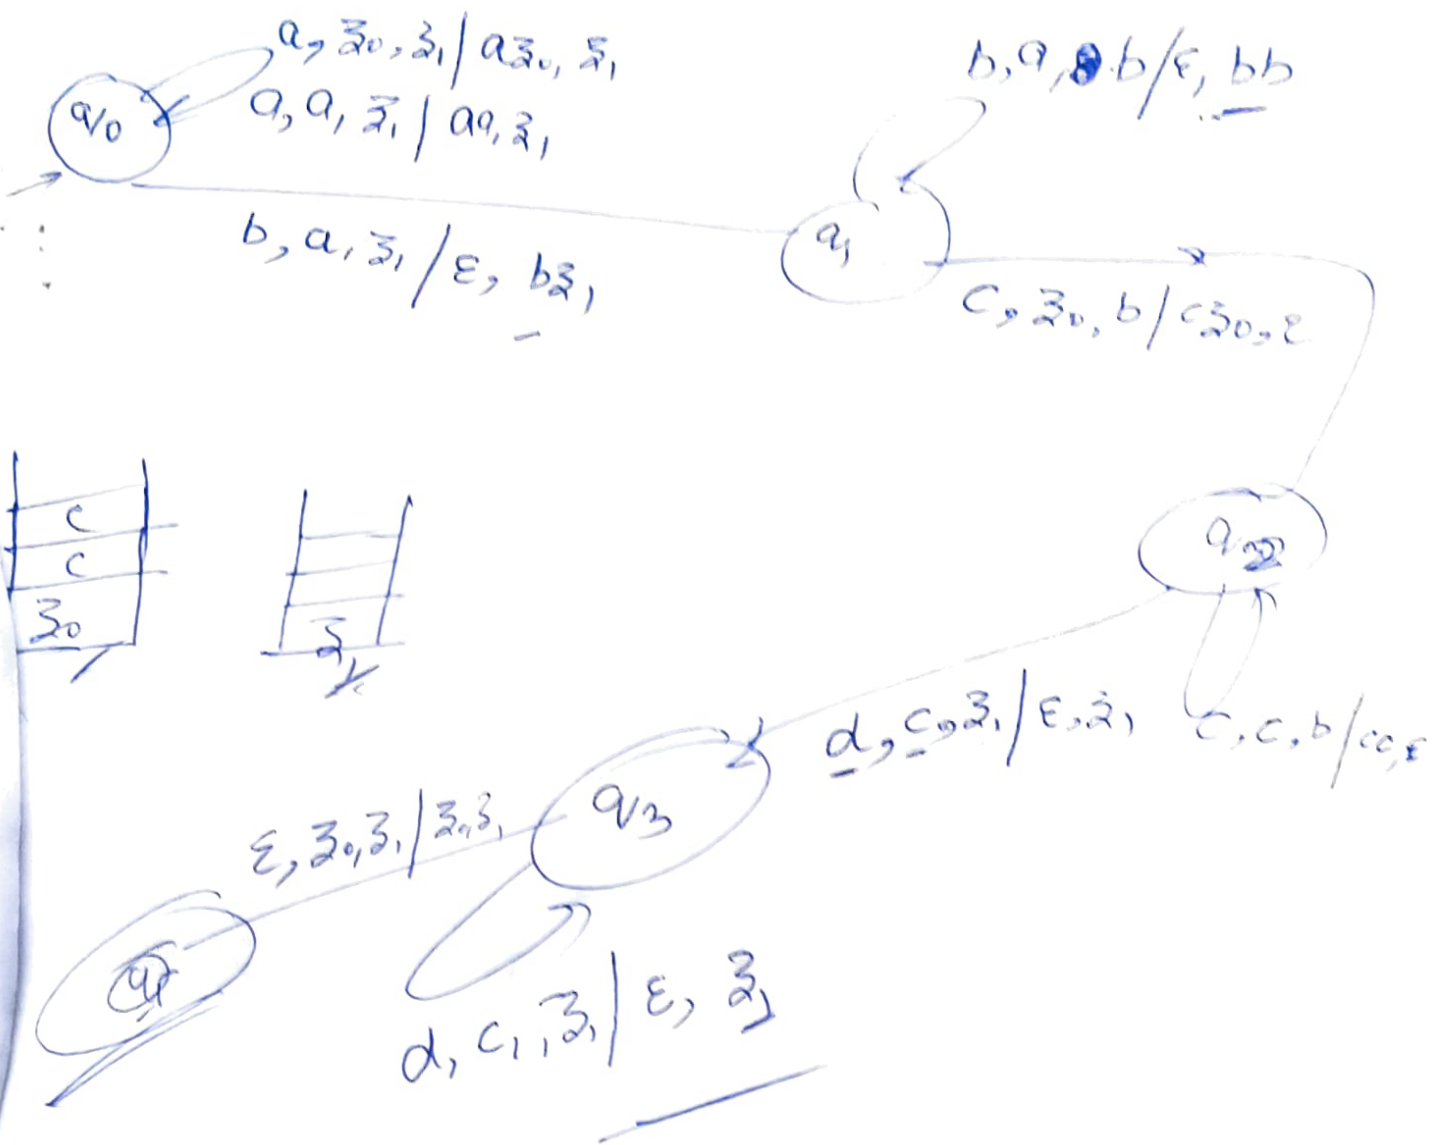 a, z₀, z₁ / az₀, z₁
a, a, z₁ / aa, z₁
q₀
b, a, b / ε, bb
b, a, z₁ / ε, bz₁
q₁
c, z₀, b / cz₀, ε
c
c
z₀
z₁
q₂
d, c, z₁ / ε, z₁
c, c, b / cc, ε
q₃
ε, z₀, z₁ / z₀, z₁
d, c, z₁ / ε, z₁